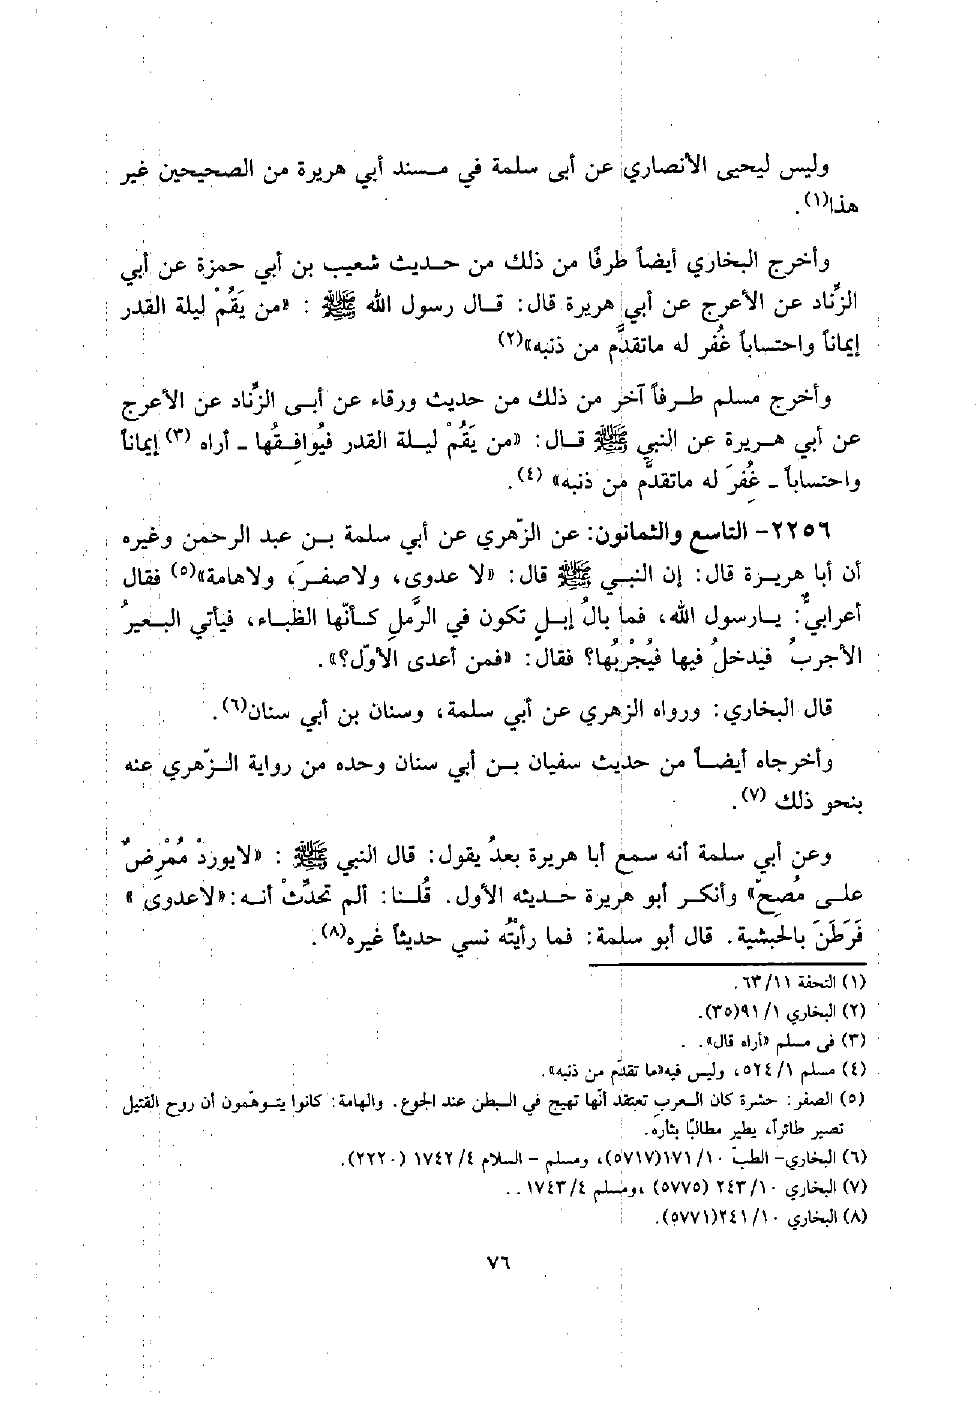 وليس ليحيى الأنصاري عن أبي سلمة في مسند أبي هريرة من الصحيحين غير
هذا(١).
وأخرج البخاري أيضاً طرفًا من ذلك من حديث شعيب بن أبي حمزة عن أبي
الزِّناد عن الأعرج عن أبي هريرة قال: قال رسول الله ﷺ : «من يَقُمْ ليلة القدر
إيماناً واحتساباً غُفر له ماتقدَّم من ذنبه»(٢)
وأخرج مسلم طرفاً آخر من ذلك من حديث ورقاء عن أبي الزِّناد عن الأعرج
عن أبي هريرة عن النبي ﷺ قال: «من يَقُمْ ليلة القدر فيُوافِقُها ـ أراه (٣) إيماناً
واحتساباً ـ غُفِرَ له ماتقدَّم من ذنبه» (٤).
٢٢٥٦- التاسع والثمانون: عن الزّهري عن أبي سلمة بن عبد الرحمن وغيره
أن أبا هريرة قال: إن النبي ﷺ قال: «لا عدوى، ولاصفرَ، ولاهامة»(٥) فقال
أعرابيٌّ: يارسول الله، فما بالُ إبلٍ تكون في الرَّملِ كأنّها الظباء، فيأتي البعيرُ
الأجربُ فيدخلُ فيها فيُجْرِبُها؟ فقال: «فمن أعدى الأوّل؟».
قال البخاري: ورواه الزهري عن أبي سلمة، وسنان بن أبي سنان(٦).
وأخرجاه أيضاً من حديث سفيان بن أبي سنان وحده من رواية الزّهري عنه
بنحو ذلك (٧).
وعن أبي سلمة أنه سمع أبا هريرة بعدُ يقول: قال النبي ﷺ : «لايوردْ مُمْرِضٌ
على مُصِحّ» وأنكر أبو هريرة حديثه الأول. قُلنا: ألم تحدِّثْ أنه:«لاعدوى »
فَرَطَنَ بالحبشية. قال أبو سلمة: فما رأيتُه نسي حديثاً غيره(٨).
(١) التحفة ٦٣/١١.
(٢) البخاري ٩١/١(٣٥).
(٣) في مسلم «أراه قال».
(٤) مسلم ٥٢٤/١، وليس فيه«ما تقدّم من ذنبه».
(٥) الصفر: حشرة كان العرب تعتقد أنّها تهيج في البطن عند الجوع. والهامة: كانوا يتوهّمون أن روح القتيل
تصير طائراً، يطير مطالبًا بثأره.
(٦) البخاري- الطبّ ١٧١/١٠(٥٧١٧)، ومسلم - السلام ١٧٤٢/٤ (٢٢٢٠).
(٧) البخاري ٢٤٣/١٠ (٥٧٧٥) ،ومسلم ١٧٤٣/٤..
(٨) البخاري ٢٤١/١٠(٥٧٧١).
٧٦